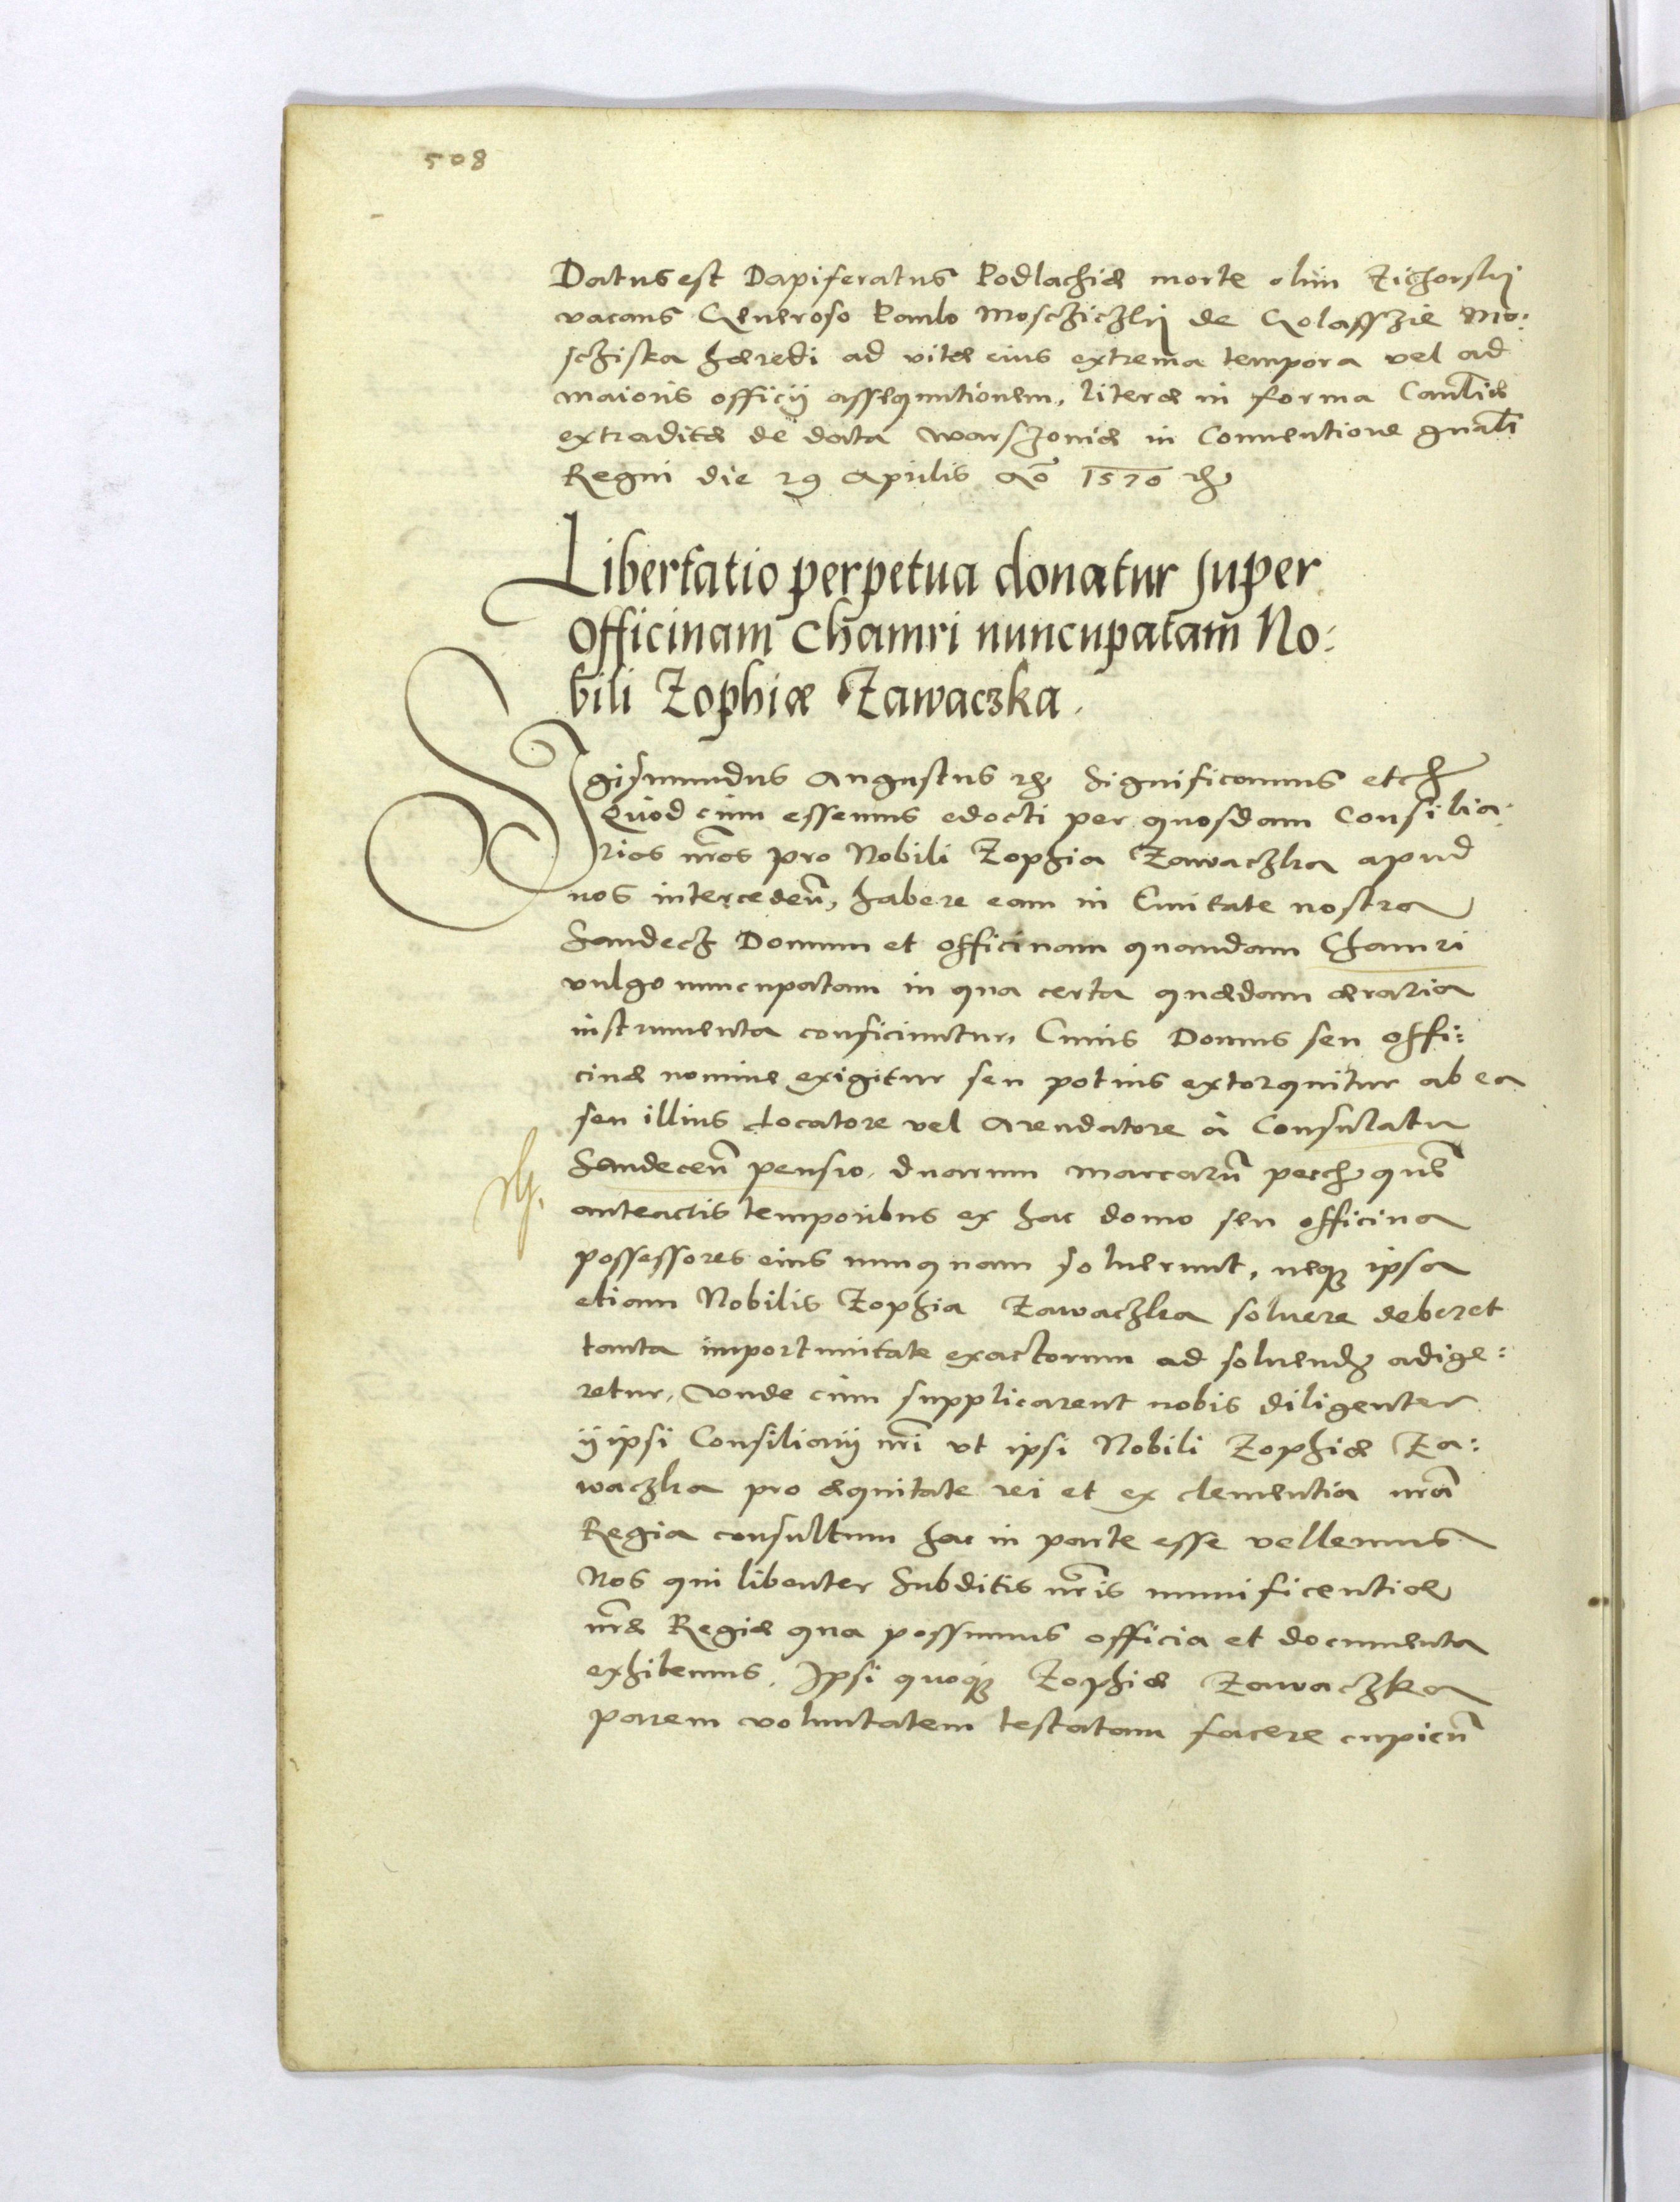 508
Datus est Dapiferatus Podlachiæ morte olim Zichorskij
vacans Generoso Paulo Moscziczkij de Golasszie Mo:
scziska hæredi ad vitæ eius extrema tempora vel ad
maioris officij assequutionem, literæ in forma Canlĩæ
extraditæ de data Warszouiæ in Conuentione gnãli
Regni die 29 Aprilis Aõ 1570
Libertatio perpetua donatur super
Officinam Chamri nuncupatam No:
bili Zophiæ Zawaczka.
Sigismundus Augustus Significamus etc
Quod cùm essemus edocti per quosdam Consilia:
rios nr̃os pro Nobili Zophia Zawaczka apud
nos interceden̄, habere eam in Ciuitate nostra
Sandecz Domum et officinam quandam Chamri
vulgo nuncupatam in qua certa quædam æraria
instrumenta conficiuntur, Cuius Domus seu offi:
cinæ nomine exigitur seu potius extorquitur ab ea
seu illius Locatore vel Arendatore à Consulatu
Sandecen̄ pensio duarum marcarū quẽ
anteactis temporibus ex hac domo seu officina
possessores eius nunquam soluerunt, neq ipsa
etiam Nobilis Zophia Zawaczka soluere deberet
tanta importunitate exactorum ad soluend adige:
retur, Vnde cùm supplicarent nobis diligenter
ij ipsi Consiliarij nr̃i vt ipsi Nobili Zophiæ Za:
waczka pro æquitate rei et ex clementia nr̃a
Regia consultum hac in parte esse vellemus
Nos qui libenter Subditis nr̃is munificentiæ
nr̃æ Regiæ qua possumus officia et documenta
exhibemus, Ipsi quoq Zophiæ Zawaczka
parem voluntatem testatam facere cupien̄